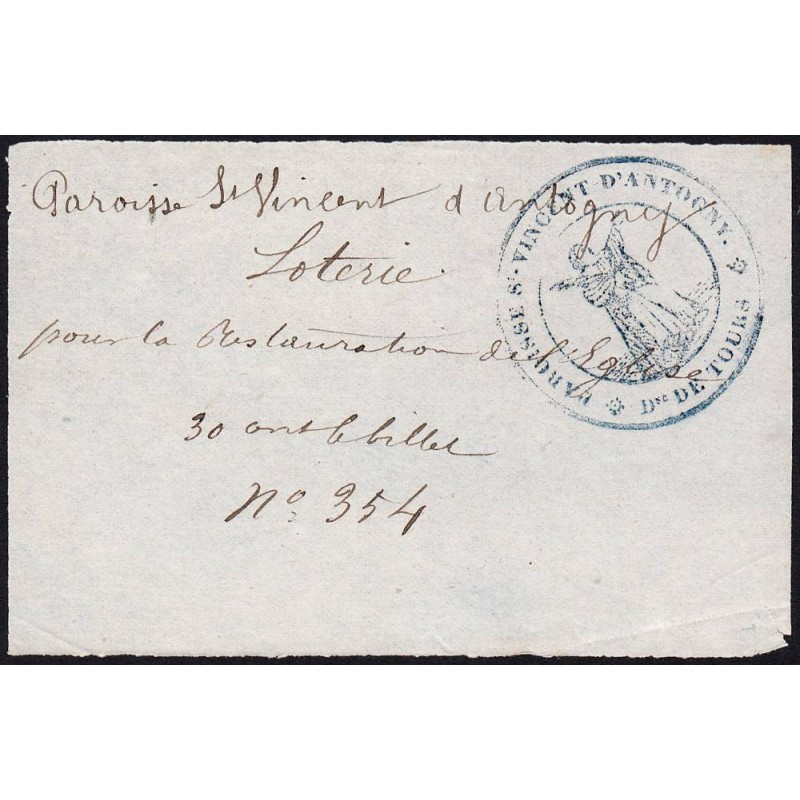 Paroisse St Vincent d'Antogny
Loterie
pour la Restauration de l'Eglise
30 cnt le billet
No 354
PAROISSE St. VINCENT-D'ANTOGNY.
Dse DE TOURS